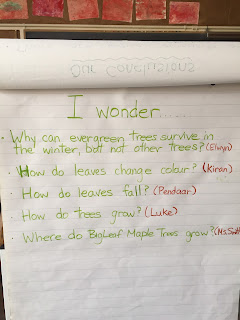 Our Conclusions
I wonder......
· Why can evergreen trees survive in
the winter, bott not other trees? (Elwyn)
· How do leaves change colour? (Kiran)
· How do leaves fall? (Pendaar)
· How do trees grow? (Luke)
· Where do BigLeaf Maple Trees grow?